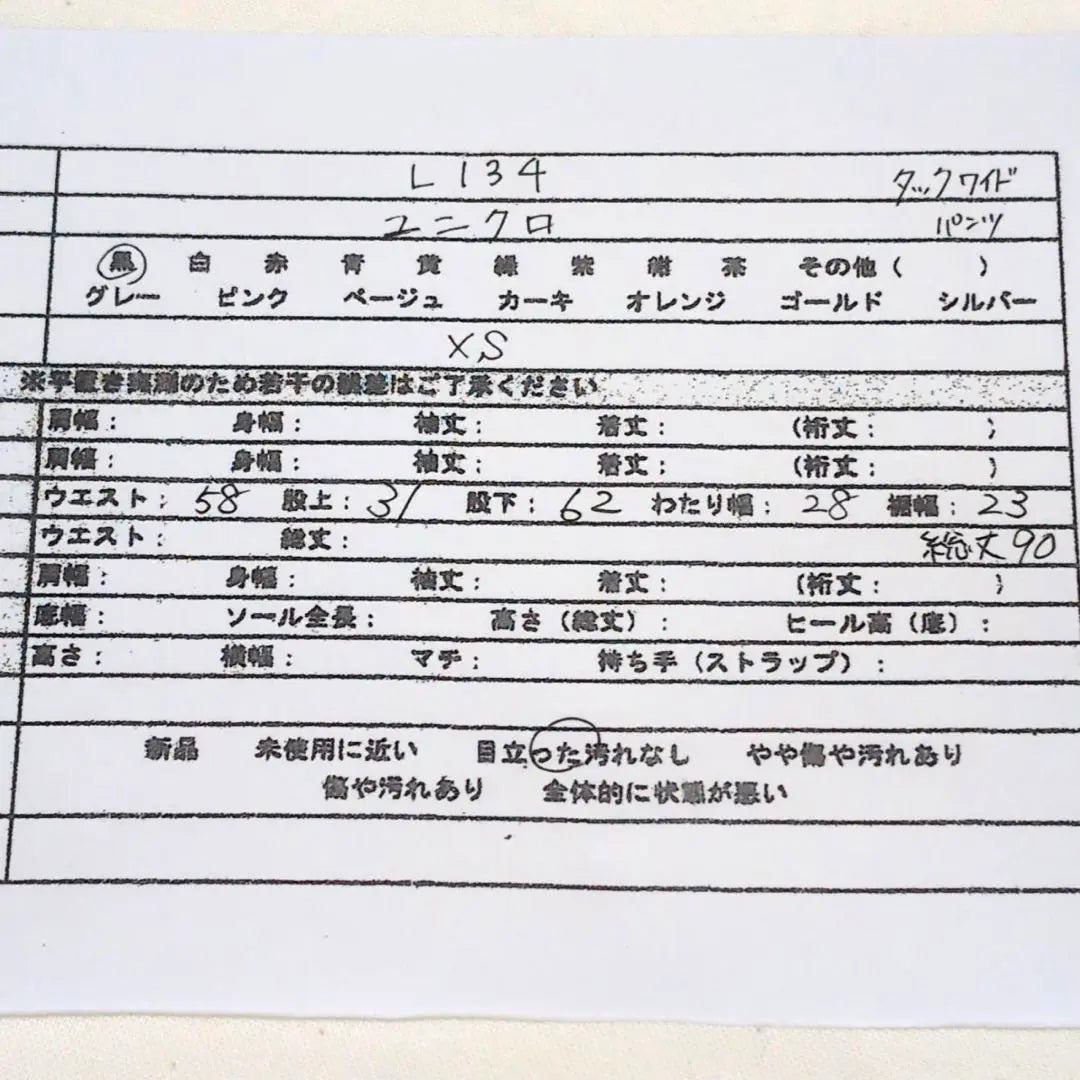 L134 タックワイド
ユニクロ パンツ
黒 白 赤 青 黄 緑 紫 紺 茶 その他（ ）
グレー ピンク ベージュ カーキ オレンジ ゴールド シルバー
XS
※平置き実測のため若干の誤差はご了承ください
肩幅： 身幅： 袖丈： 着丈： （裄丈： ）
肩幅： 身幅： 袖丈： 着丈： （裄丈： ）
ウエスト：58 股上：31 股下：62 わたり幅：28 裾幅：23
ウエスト： 総丈： 総丈90
肩幅： 身幅： 袖丈： 着丈： （裄丈： ）
底幅： ソール全長： 高さ（総丈）： ヒール高（底）：
高さ： 横幅： マチ： 持ち手（ストラップ）：
新品 未使用に近い 目立った汚れなし やや傷や汚れあり
傷や汚れあり 全体的に状態が悪い